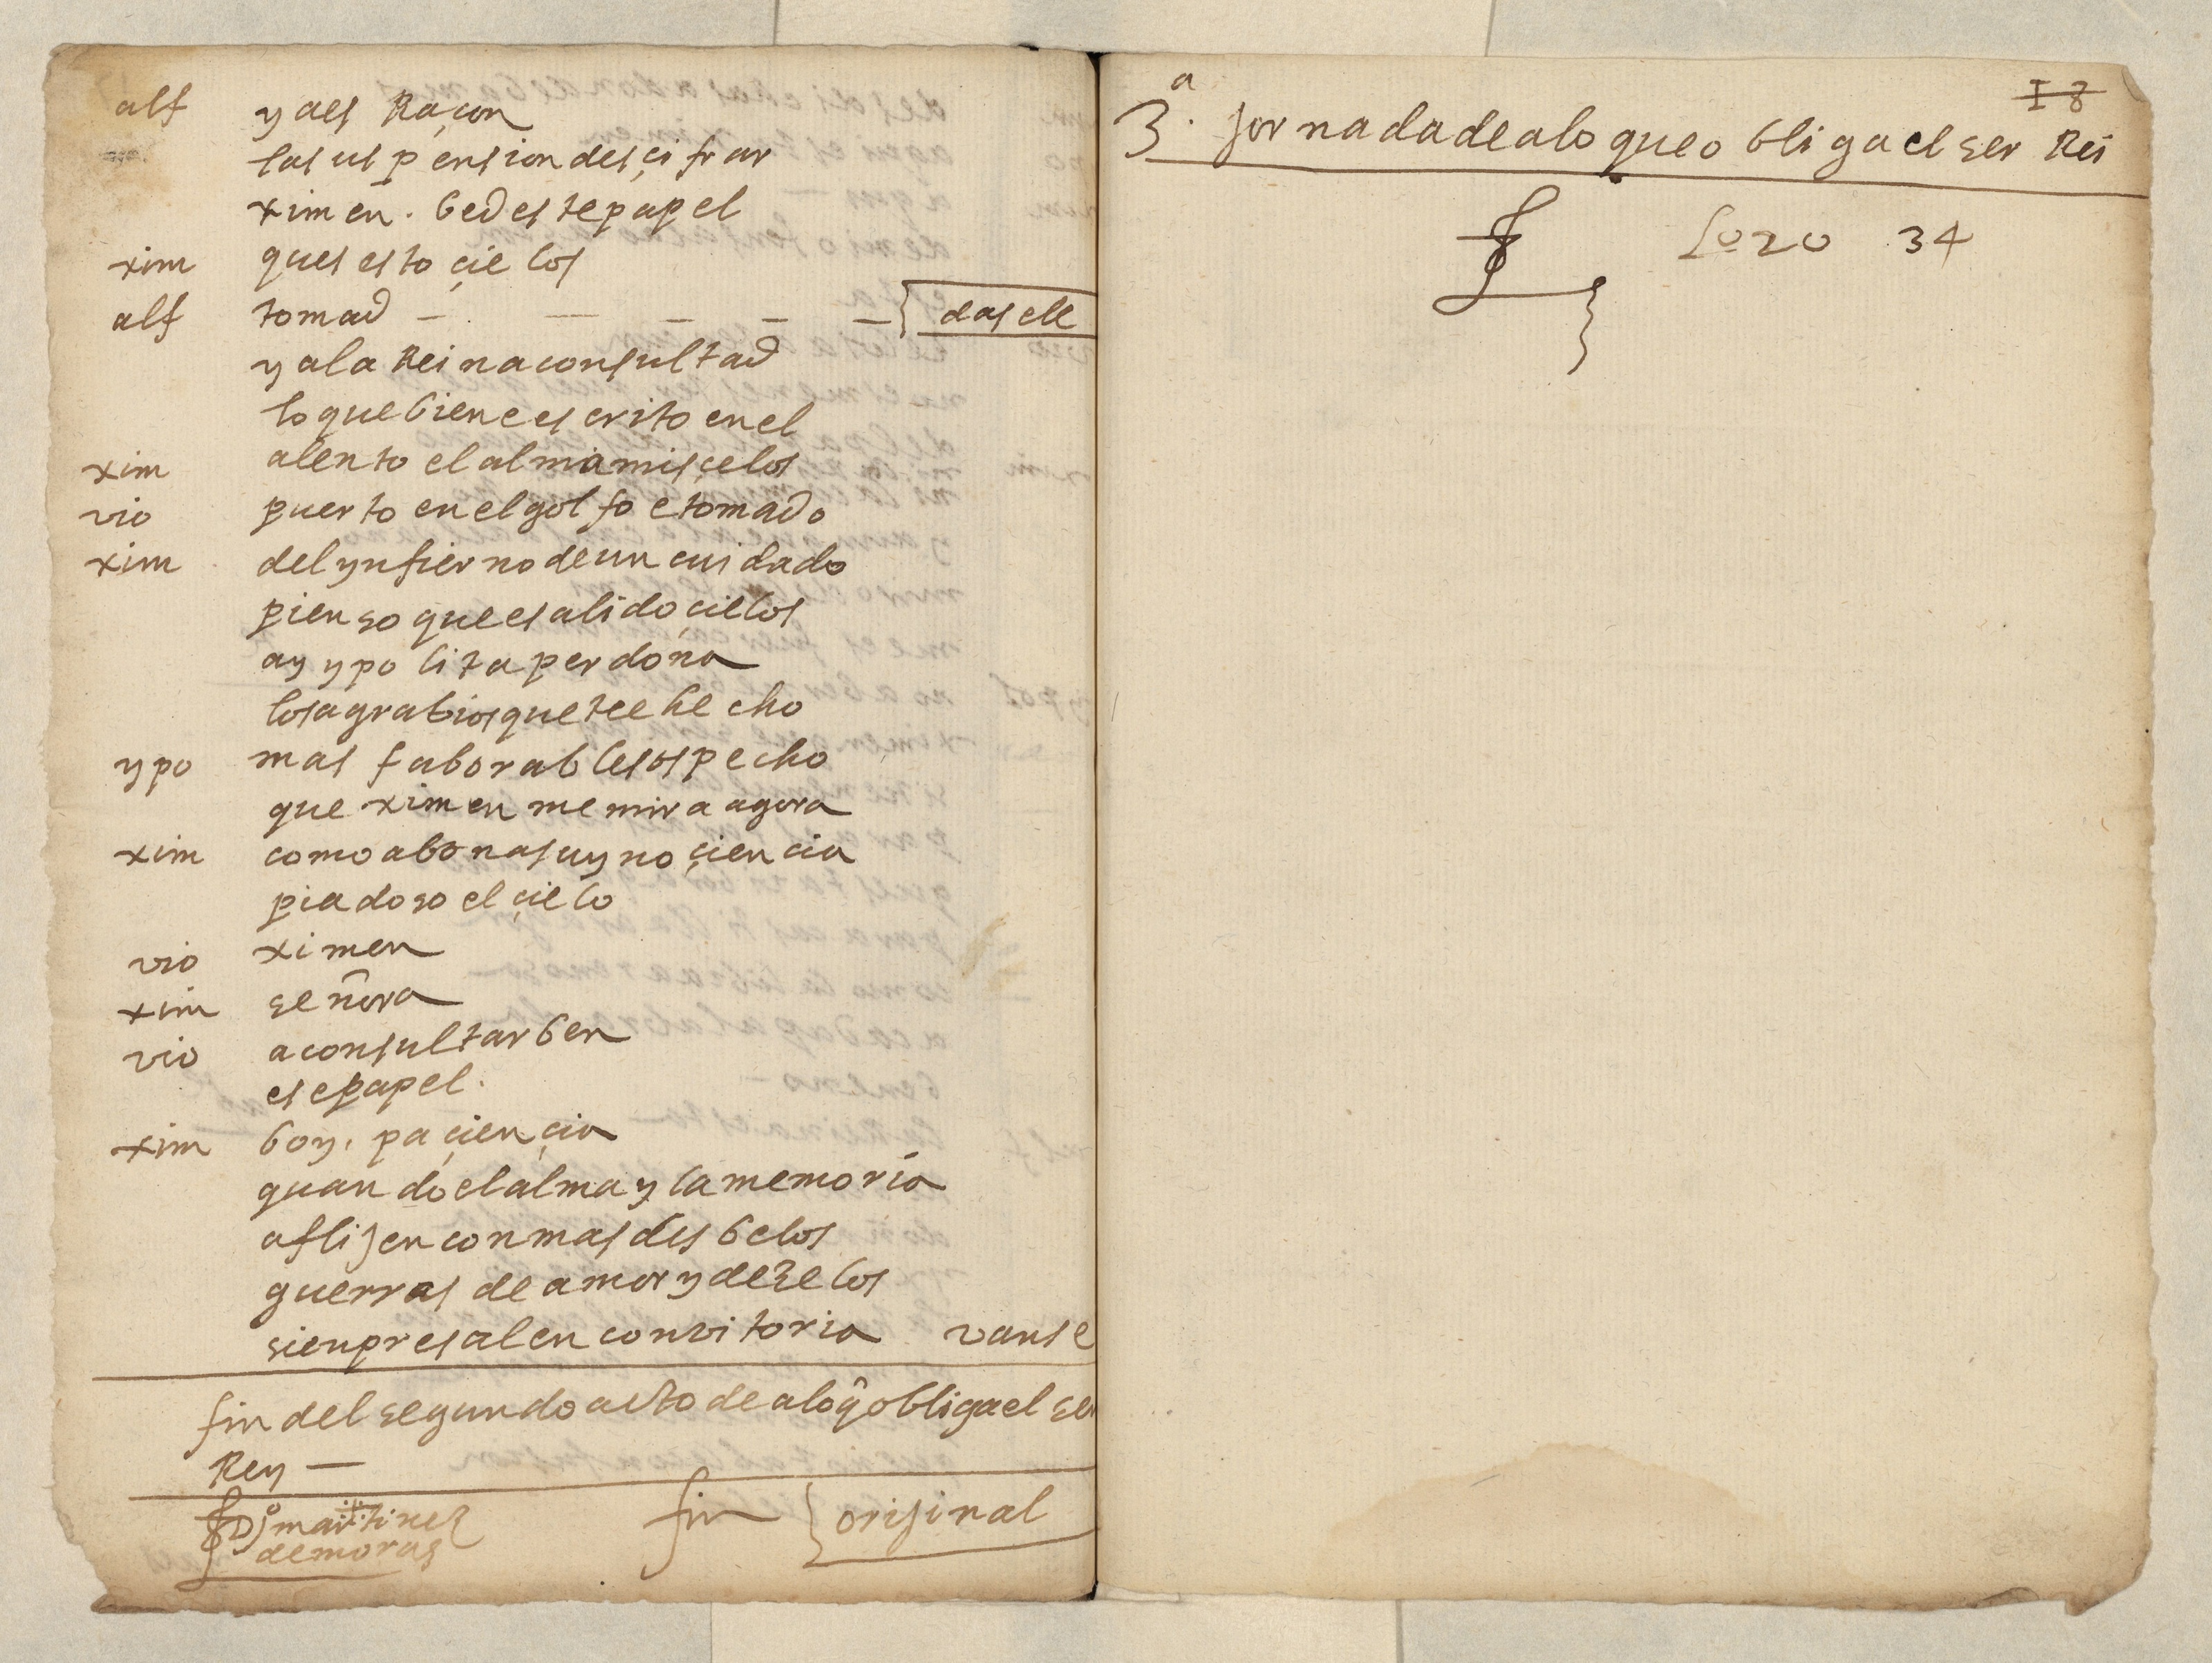 alf y aes Raçon
la suspension desçifrar
ximen. bed este papel
xim ques esto çielos
alf tomad — — — — — dasele
y a la Reina consultad
lo que biene escrito en el
xim alento el alma mis çelos
vio puerto en el golfo e tomado
xim del ynfierno de un cuidado
pienso que e salido çielos
ay ypolita perdona
los agrabios que te e hecho
ypo mas faborable sospecho
que ximen me mira agora
xim como abona su ynoçiencia
piadoso el çielo
vio ximen
xim señora
vio a consultar ben
ese papel.
xim boy, paçiençia
quando el alma y la memoria
aflijen con mas desbelos
guerras de amor y de zelos
sienpre salen con vitoria vanse
fin del segundo acto de a lo q̂ obliga el ser
Rey —
Dj.º martinez fin orijinal
de mora
3.ª jornada de a lo que obliga el ser Rei
I 8
20 34